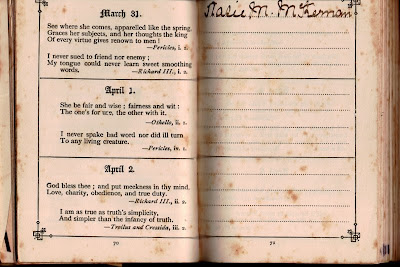 March 31.
See where she comes, apparelled like the spring,
Graces her subjects, and her thoughts the king
Of every virtue gives renown to men!
—Pericles, i. 1.
I never sued to friend nor enemy;
My tongue could never learn sweet smoothing
words. —Richard III., i. 2.
April 1.
She be fair and wise; fairness and wit:
The one's for use, the other with it.
—Othello, ii. 1.
I never spake bad word nor did ill turn
To any living creature.
—Pericles, iv. 1.
April 2.
God bless thee; and put meekness in thy mind,
Love, charity, obedience, and true duty.
—Richard III., ii. 2.
I am as true as truth's simplicity,
And simpler than the infancy of truth.
—Troilus and Cressida, iii. 2.
70
M. McKernan